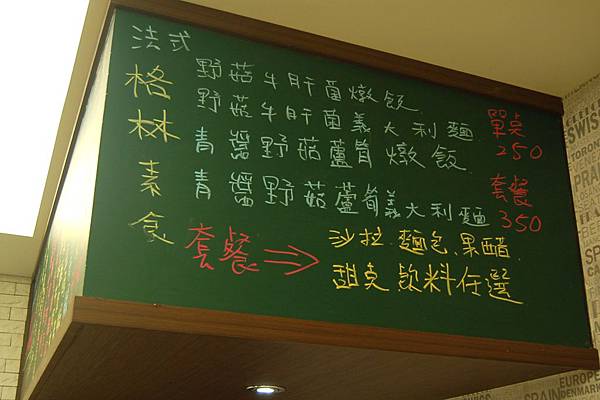 法式
格林素食
野菇牛肝菌燉飯
野菇牛肝菌義大利麵
青醬野菇蘆筍燉飯
青醬野菇蘆筍義大利麵
單桌
250
套餐
350
套餐⇒沙拉.麵包.果醋.
甜桌 飲料任選
SWISS
TORONTO
EUROPE
SPAIN
DENMARK